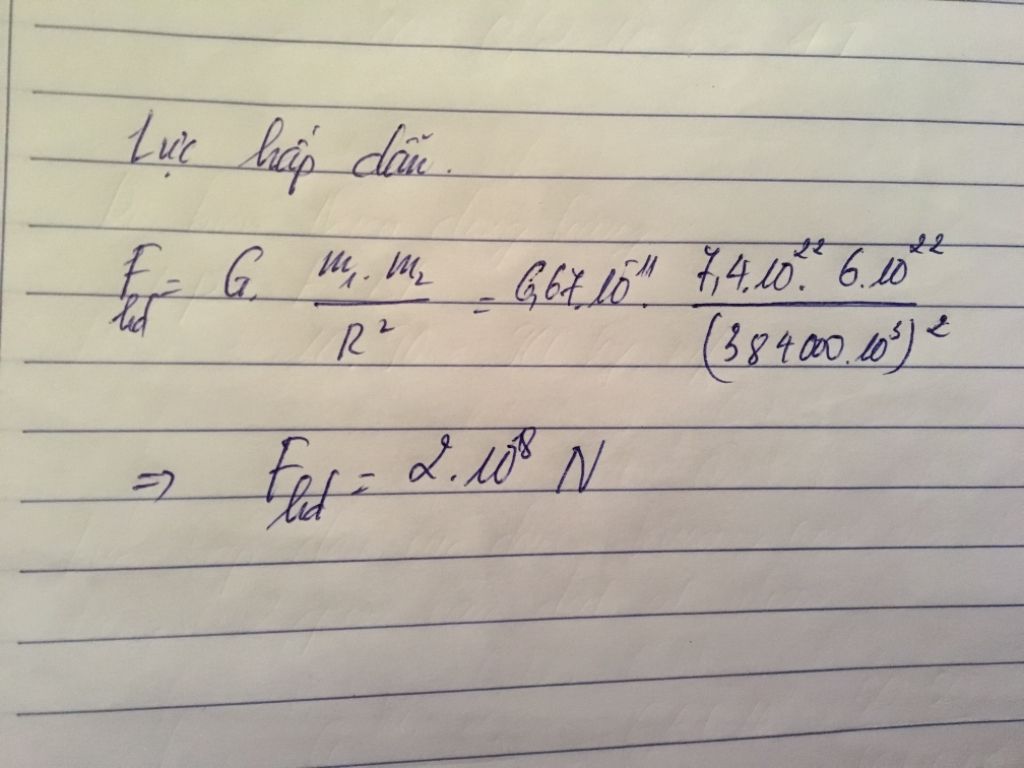 Lực hấp dẫn.
F_hd = G. m₁. m₂ / R² = 6,67.10⁻¹¹. 7,4.10²². 6.10²² / (384000.10³)²
=> F_hd = 2.10⁻⁸ N